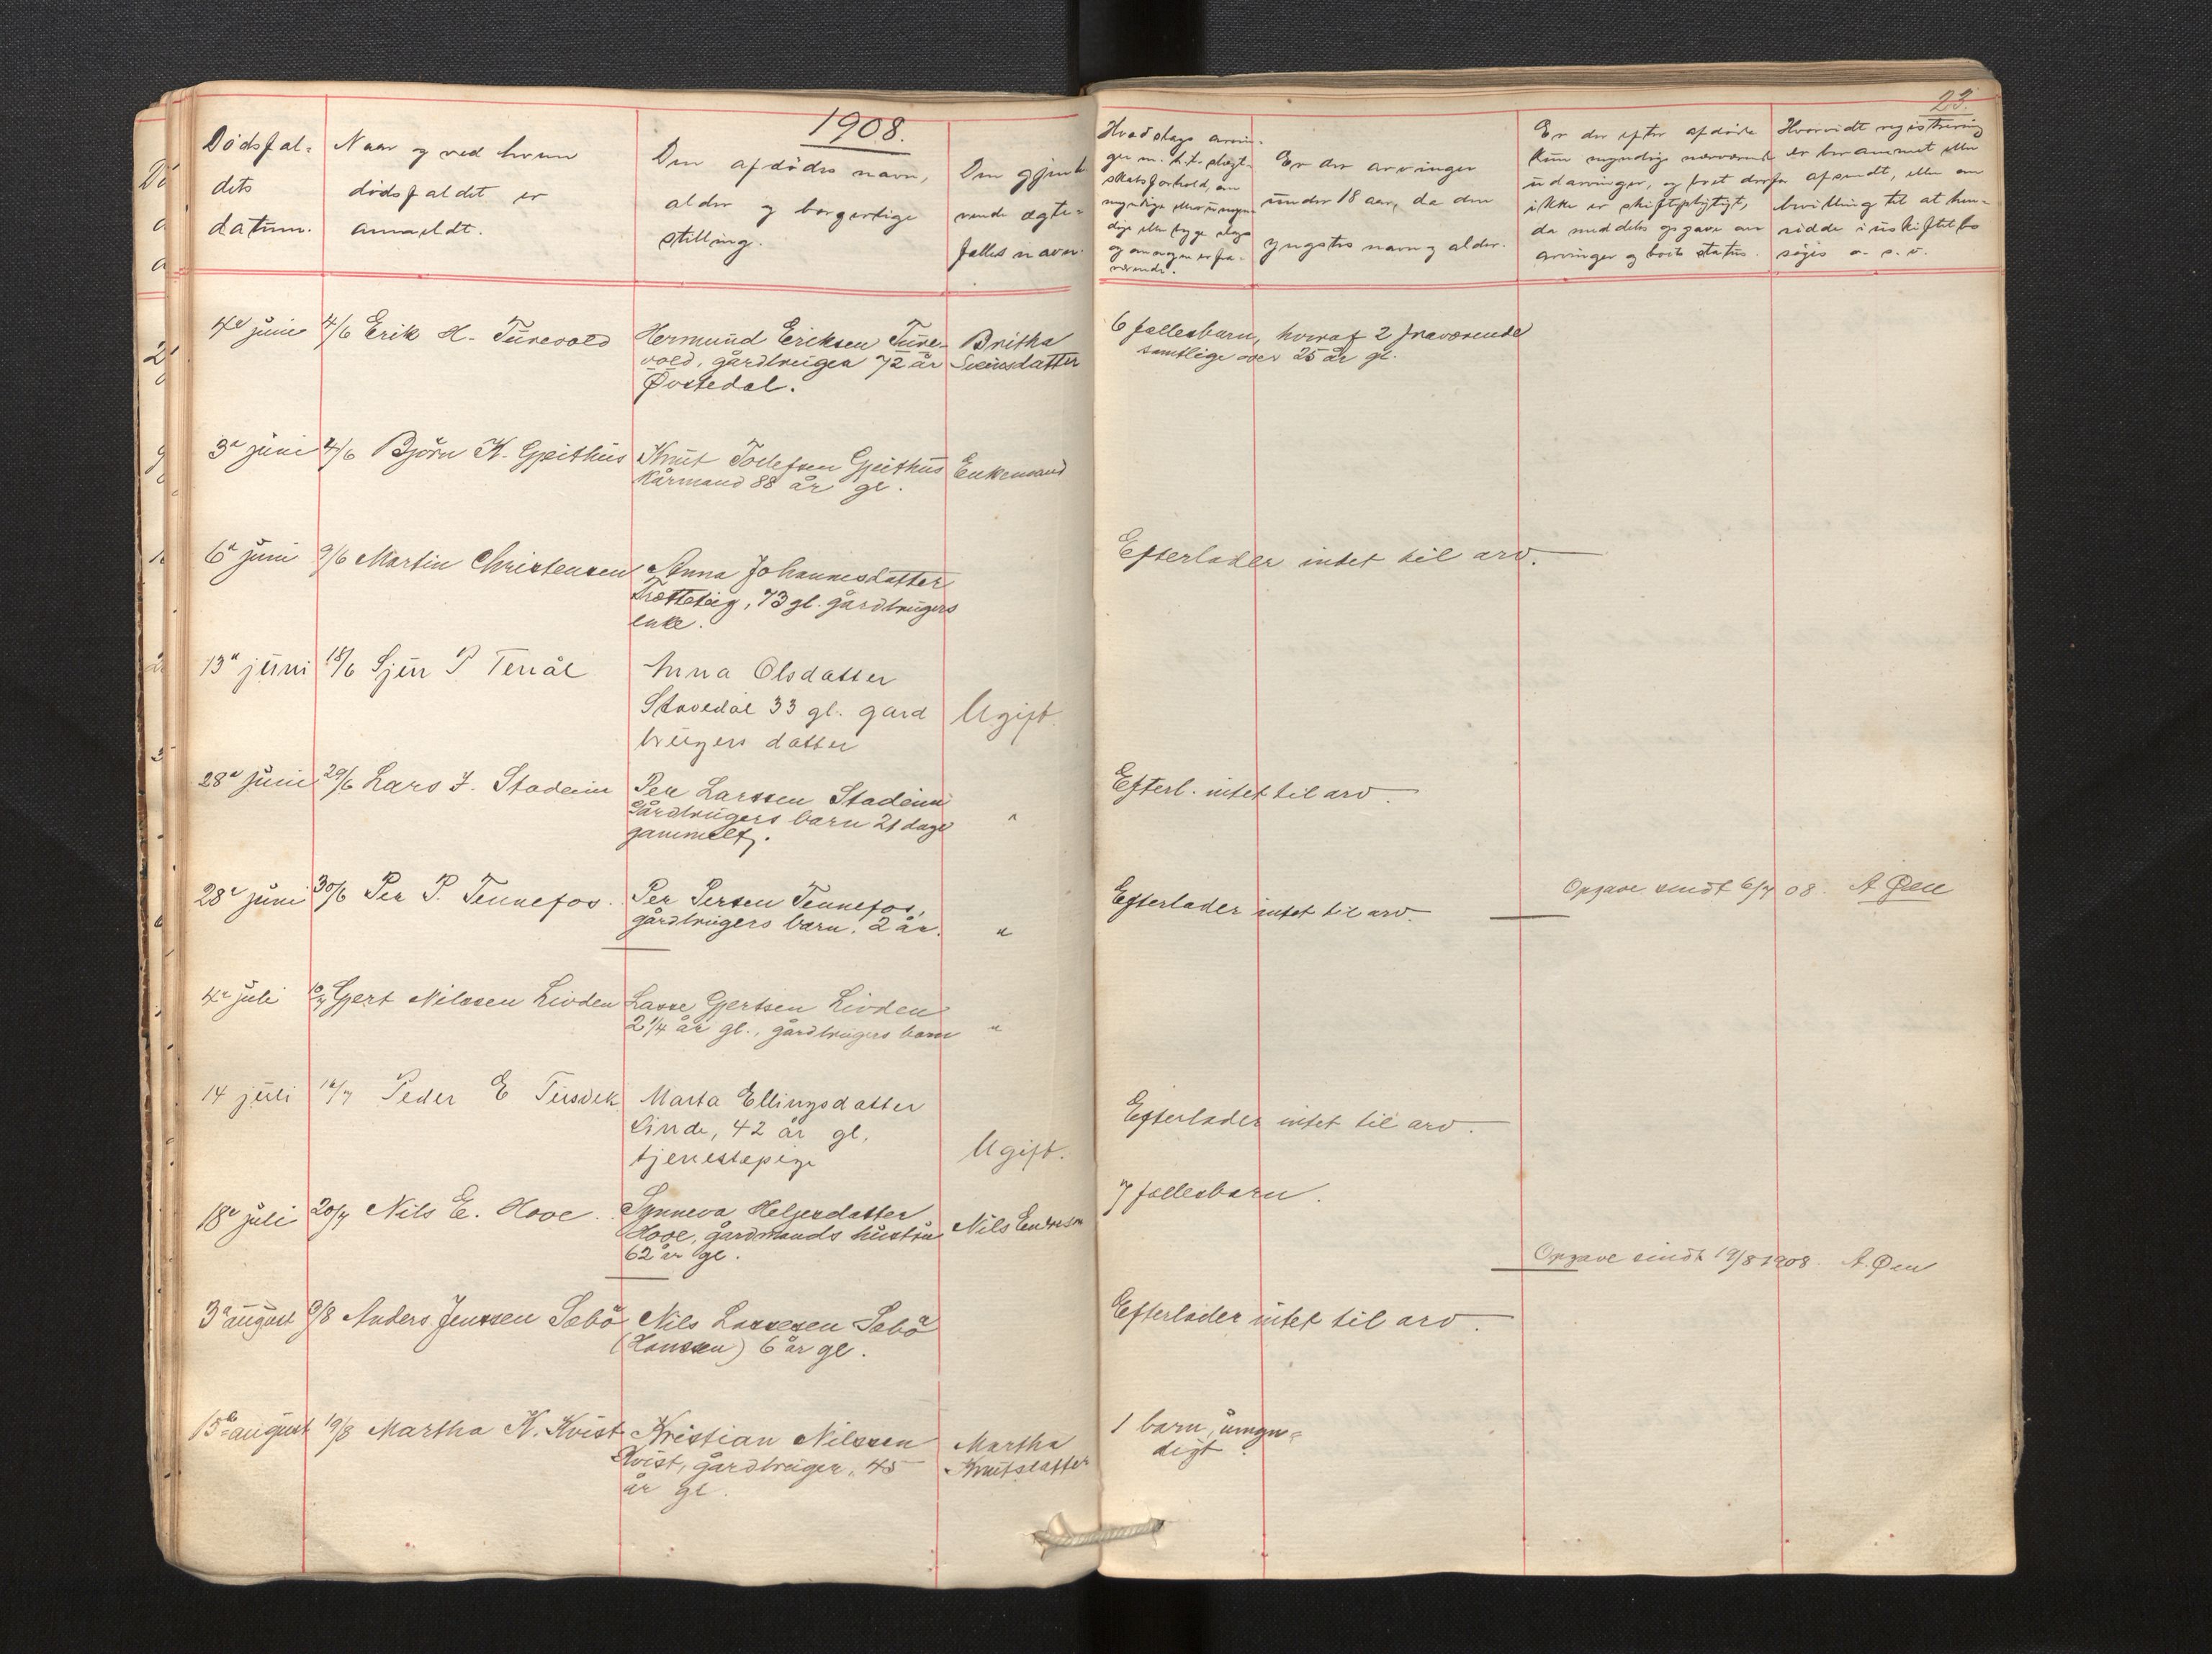 1908.
23.
Dødsfal-
dets
datum.
Naar og ved hvem
dødsfaldet er
anmeldt.
Den afdødes navn,
alder og borgerlige
stilling.
Den gjenle-
vende ægte-
fælles navn.
Hvad slags arvin-
ger m. h. t. slægt-
skabsforhold, om
myndige eller umyn-
dige eller begge slags
og om nogen er fra-
værende.
Er der arvinger
under 18 aar, da den
yngstes navn og alder.
Er der efter afdøde
kun myndige nærværende
udarvinger, og boet derfor
ikke er skiftepligtigt,
da meddeles opgave over
arvinger og boets status.
Hvorvidt registrering
er berammet eller
afsendt, eller om
bevilling til at hen-
sidde i uskiftet bo
søges o. s. v.
4de juni 4/6 Erik H. Turevold
Hermund Eriksen Ture-
vold, gårdbruger 72 år
Øvstedal.
Britha
Sveinsdatter
6 fællesbarn, hvoraf 2 fraværende
samtlige over 25 år gl.
3e juni 4/6 Bjørn K. Gjeithus
Knut Tollefsen Gjeithus
Kårmand 88 år gl.
Enkemand
6e juni 9/6 Martin Christensen
Anna Johannesdatter
Trætteteig, 73 gl. gårdbrugers
enke.
Efterlader intet til arv.
13e juni 18/6 Sjur P. Tenål
Anna Olsdatter
Stavedal 33 gl. gård
brugers datter
Ugift.
28e juni 29/6 Lars J. Stadeim
Per Larssen Stadeim
Gårdbrugers barn 21 dage
gammelt.
"
Efterl. intet til arv.
28e juni 30/6 Per P. Tennefos.
Per Persen Tennefos,
gårdbrugers barn. 2 år.
"
Efterlader intet til arv.
Opgave sendt 6/7 08. A Øen
4e juli Gjert Nilssen Livden
Lasse Gjertsen Livden
2 1/4 år gl., gårdbrugers barn
"
14 juli 16/7 Peder E Tusvik
Marta Ellingsdatter
Linde, 42 år gl.
tjenestepige
Ugift.
Efterlader intet til arv.
18e juli 20/7 Nils E. Hove.
Synneva Helgesdatter
Hove, gårdmands hustru
62 år gl.
Nils Endresen
7 fællesbarn.
Opgave sendt 19/8 1908. A. Øen
3e august 9/8 Anders Jenssen Sebø
Nils Lassesen Sebø
(Hanssen) 6 år gl.
Efterlader intet til arv.
15de august 19/8 Martha K. Kvist
Kristian Nilssen
Kvist, gårdbruger, 45
år gl.
Martha
Knutsdatter
1 barn, umyn-
digt.